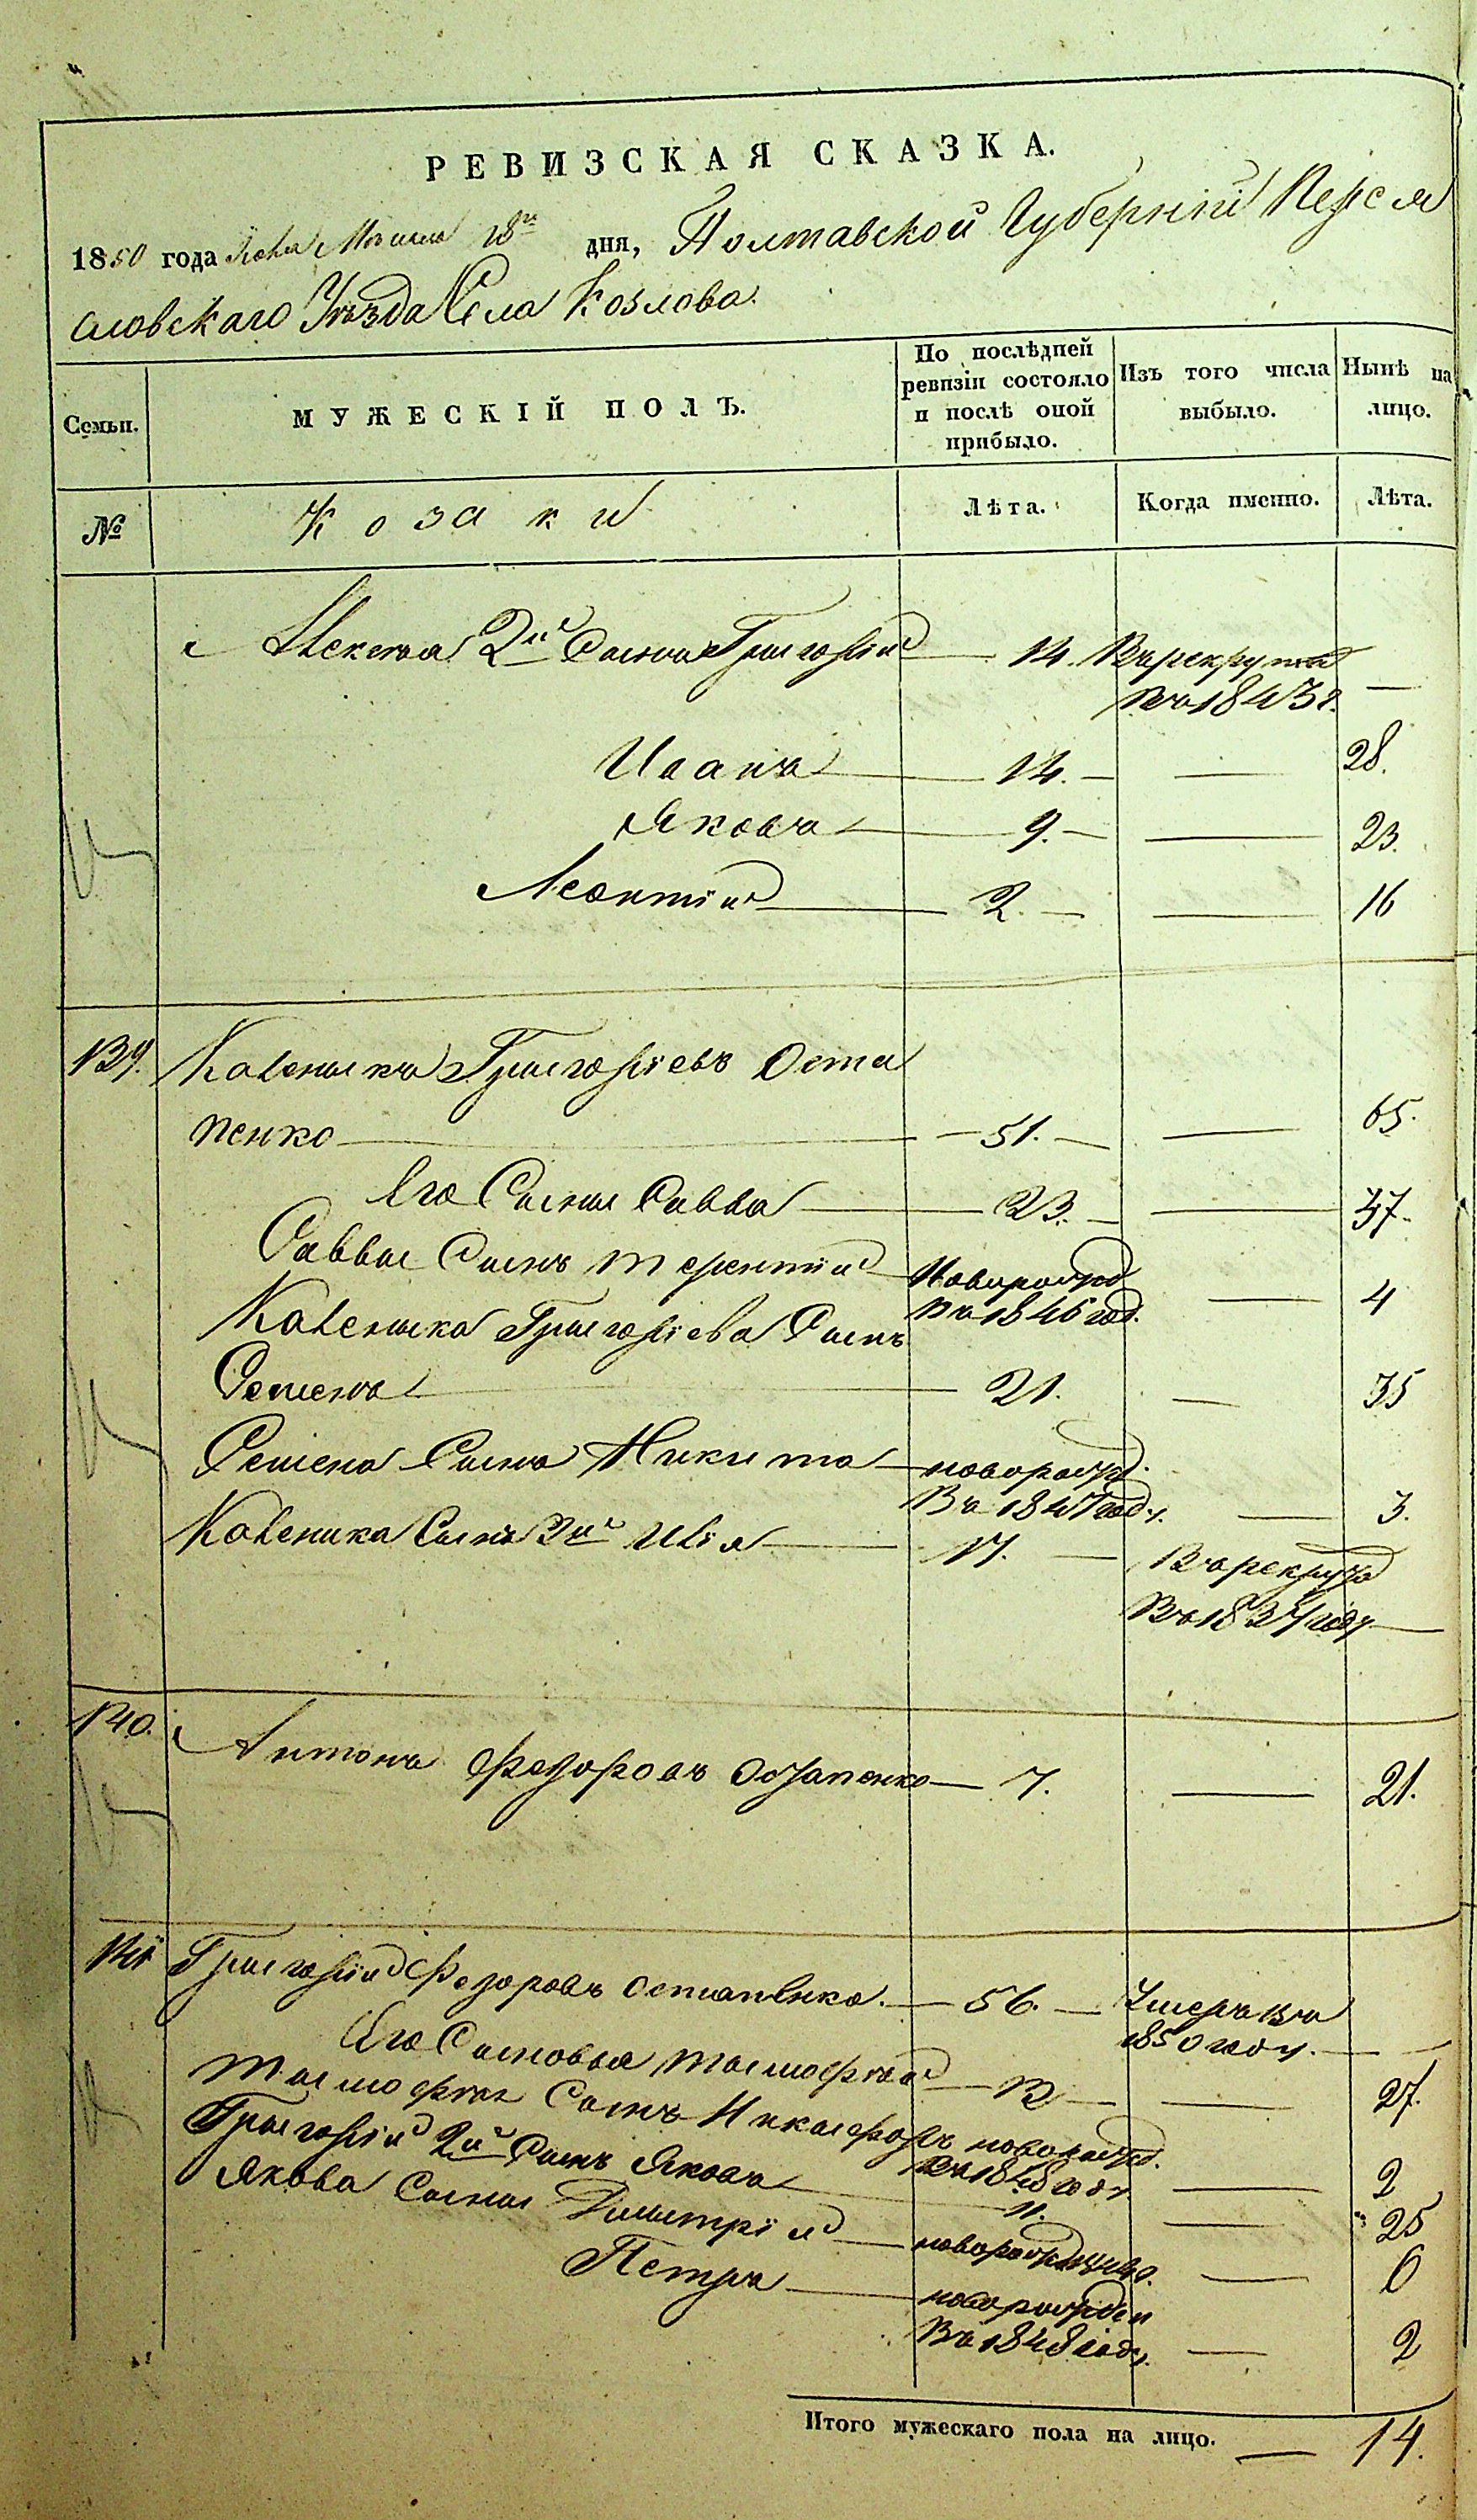 РЕВИЗСКАЯ СКАЗКА.
1850 года 18го дня, Полтавской Губерніи Перея
словскаго Уѣзда Села Козлова.
Семьи.
МУЖЕСКІЙ ПОЛЪ.
По послѣдней ревизіи состояло и послѣ оной прибыло.
Изъ того числа выбыло.
Нынѣ на лицо.
№
Козаки
Лѣта.
Когда именно.
Лѣта.
2й Сынъ Григорій 14. Въ рекрута
въ 1843 г. —
Иванъ — 14. — — 28.
Яковъ — 9. — — 23.
Леонтій — 2. — — 16
139. Григоріевъ Оста
пенко — 51. — — 65.
Его Сыны Савва — 23. — — 37.
Саввы Сынъ Терентій Новорожд
въ 1846 год. — 4
Григоріева Сынъ
Семенъ — 21. — 35
Семена Сынъ Никита — новорожд.
Въ 1847 году. — 3.
Сынъ 3й Илія — 17. — Въ рекрута
Въ 1837 году —
140. Антонъ Федоровъ Остапенко — 7. — 21.
141 Григорій Федоровъ Остапенко. — 56. — Умеръ въ
1850 году. —
Его Сыновья Тимофѣй — 13 — — 27.
Тимофѣя Сынъ Никифоръ новорожд.
въ 1848 году. — 2
Григорія 2й Сынъ Яковъ — 11. — 25
Якова Сыны Димитрій — — 6
Петръ — новорожден
Въ 1848 году. — 2
Итого мужескаго пола на лицо. — 14.